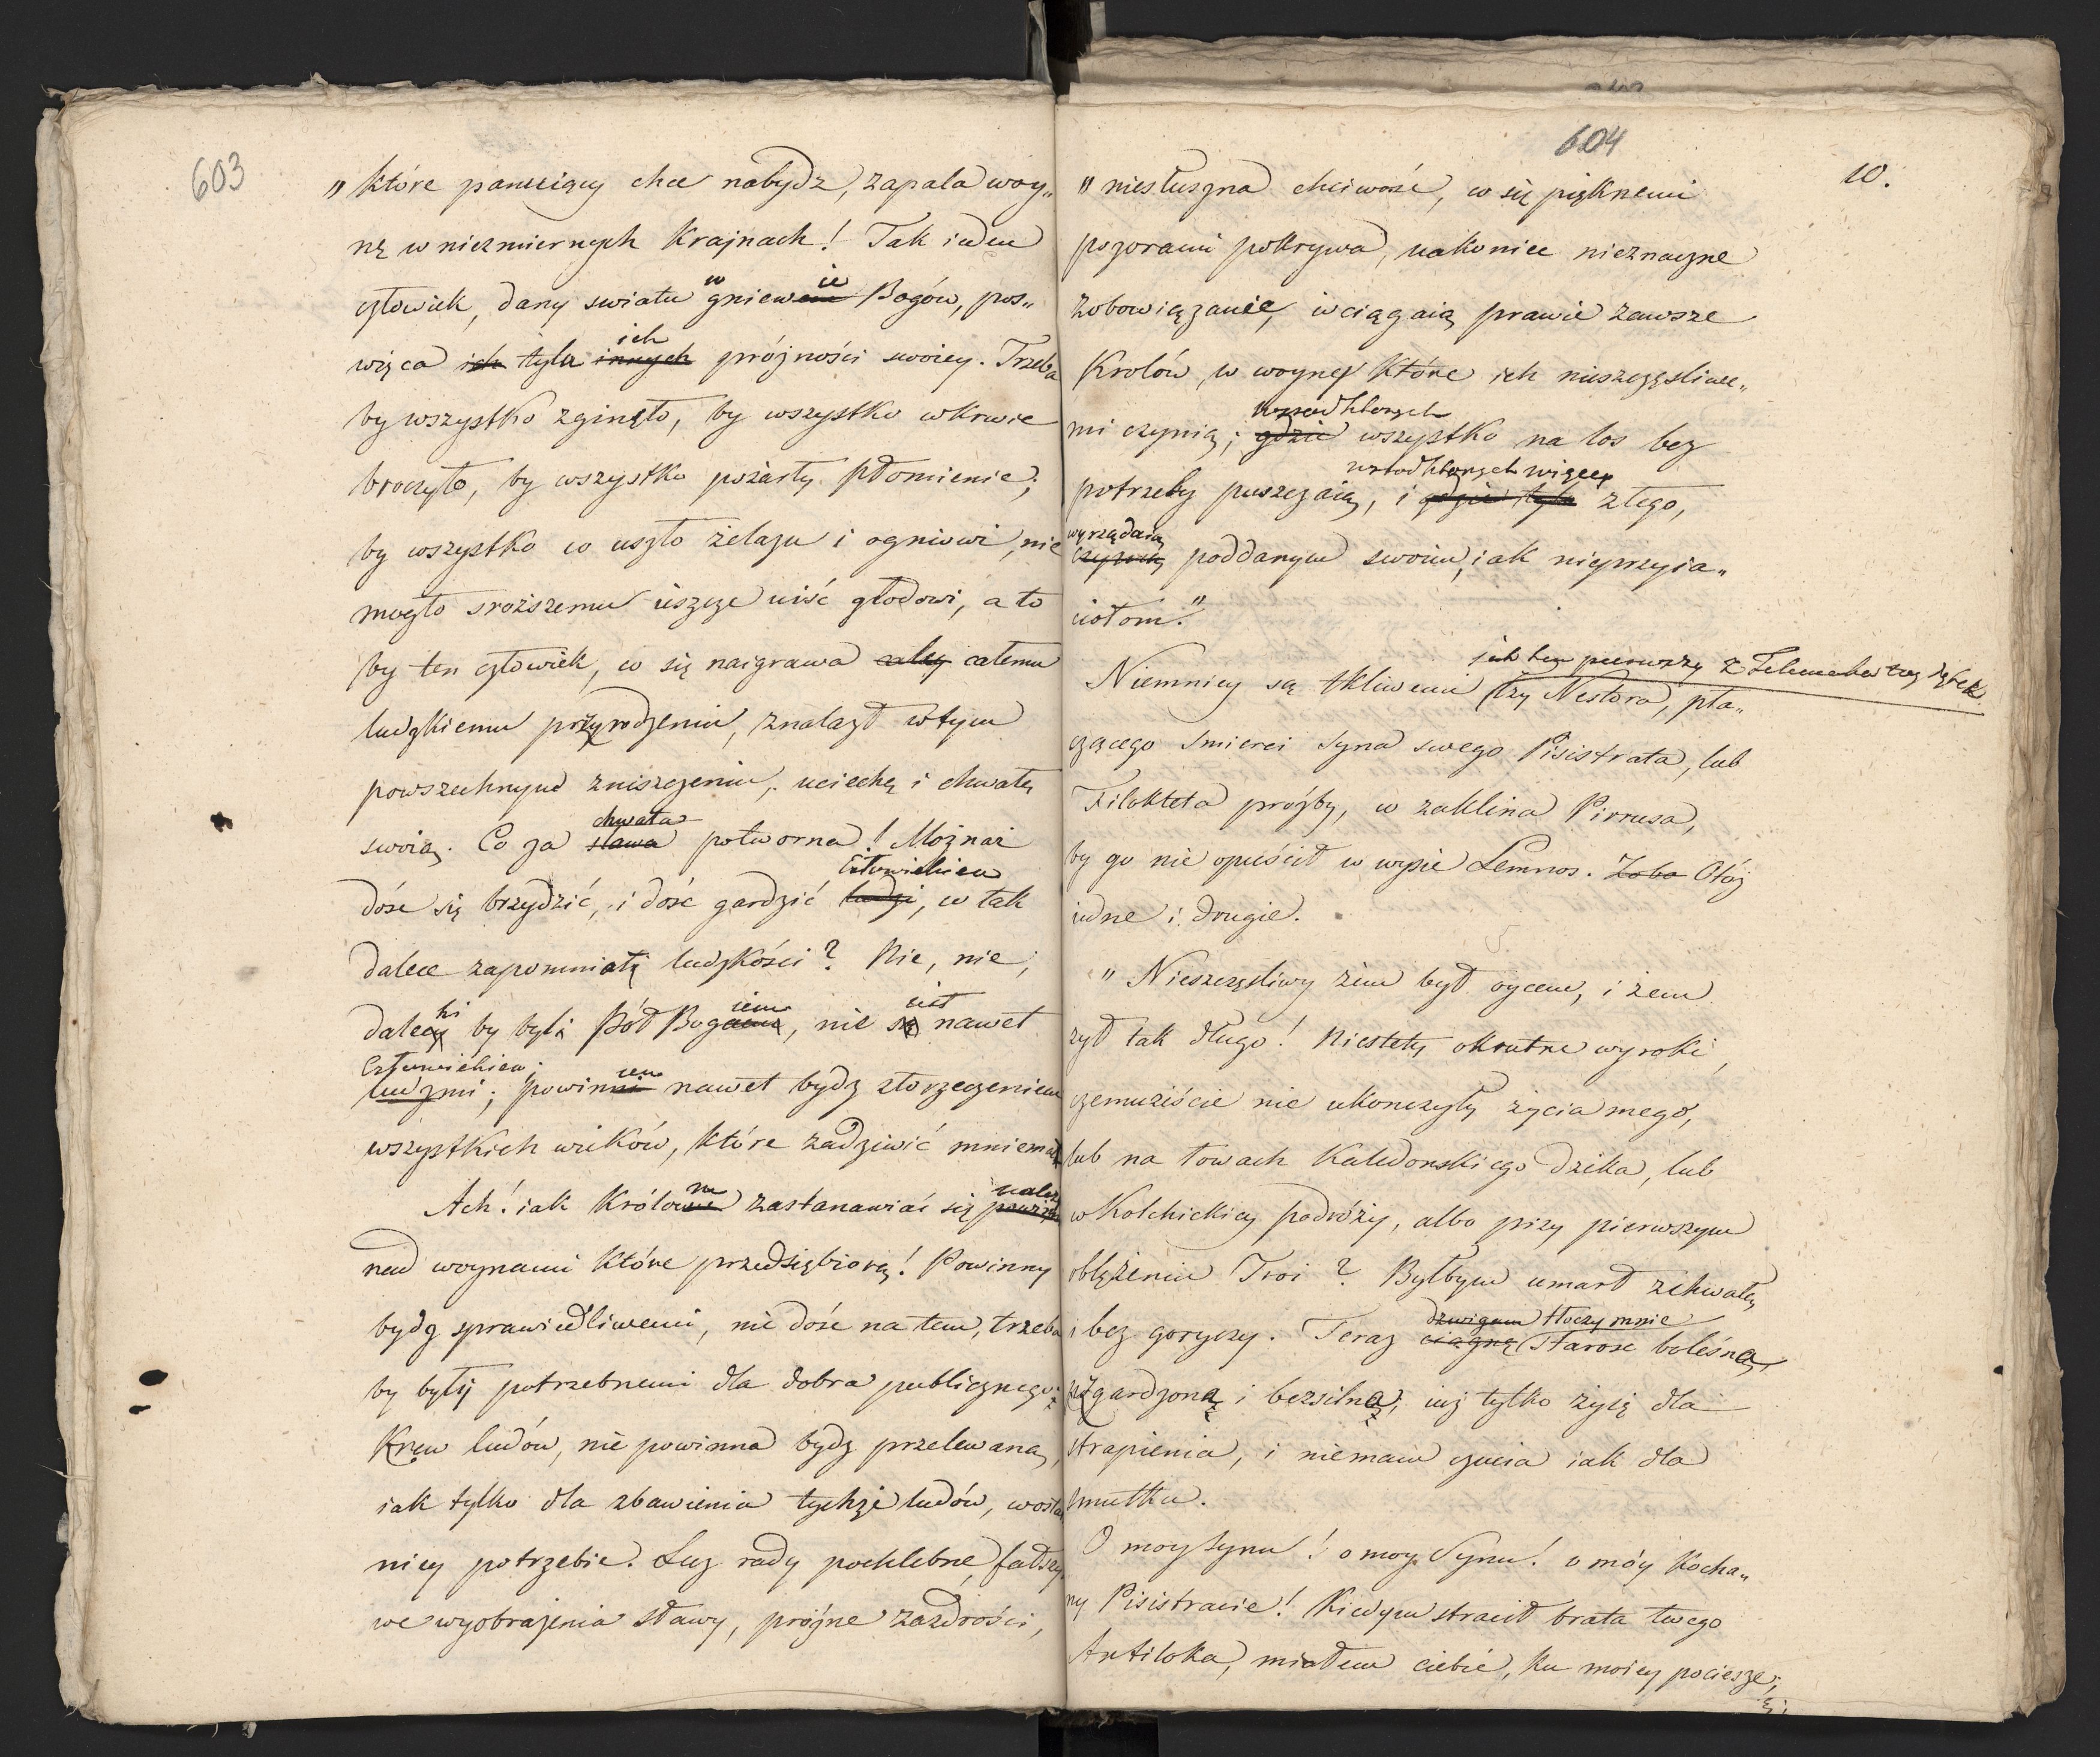 603
" które panuiący chce nabydz, zapala woy„
nę w niezmiernych Krajnach! Tak ieden
człowiek, dany swiatu w gniewie Bogów, pos„
więca ich tylu ich innych próżności swoiey. Trzeba
by wszystko zginęło, by wszystko w Krwie
broczyło, by wszystko pożarły płomienie;
by wszystko co uszło żelazu i ogniowi, nie
mogło sroższemu ieszcze uiść głodowi, a to
by ten człowiek, co się naigrawa całey całemu
ludzkiemu przyrodzeniu, znalazł w tym
powszechnym zniszczeniu, uciechę i chwałę
chwała
swoią. Co za sława potworna! Możnaż
Człowiekiem
dość się brzydzić, i dość gardzić ludzi, co tak
dalece zapomniał ludzkości? Nie, nie,
daleki by był Pół Bogiem, nie iest nawet
Człowiekiem;
ludzmi; powinien nawet bydz złorzeczeniem
wszystkich wieków, które zadziwić mniemał
Ach! iak Królom zastanawiać się należy
nad woynami które przedsiębiorą! Powinny
bydz sprawiedliwemi, nie dość na tem, trzeba
by były potrzebnemi dla dobra publicznego;
Krew ludów, nie powinna bydz przelewaną,
iak tylko dla zbawienia tychże ludów, w osta„
niey potrzebie. Lecz rady pochlebne, fałszy„
we wyobrażenia sławy, próżne zazdrości,
604
10.
" niesłuszna chciwość, co się pięknemi
pozorami pokrywa, nakoniec nieznaczne
zobowiązanie, wciągaią prawie zawsze
Krolów w woyny które ich nieszczęśliwe„
wposrod ktorych
mi czynią; gdzie wszystko na los bez
wsrod ktorych więcey
potrzeby puszczaią, i gdzie tyle złego,
wyrządzaią
czynią poddanym swoim, iak nieprzyia„
ciołom."
iak ten pierwszy z Telemaka
Niemniey są tkliwemi łzy Nestora, pła„
czącego smierci syna swego Pisistrata, lub
Filokteta prożby, co zaklina Pirrusa,
by go nie opuścił w wyspie Lemnos. Zoba Otóż
iedne i drugie.
" Nieszczęśliwy żem był oycem, i żem
żył tak długo! Niestety okrutne wyroki,
czemużiście nie ukonczyły życia mego,
lub na łowach Kaledonskiego dzika, lub
w Kolchickiey podróży, albo przy pierwszym
oblężeniu Troi? Byłbym umarł z chwałą
dzwigam tłoczy mnie
i bez goryczy. Teraz ciągnę starość boleśna,
wzgardzona i bezsilna; iuż tylko żyię dla
strapienia, i niemam czucia iak dla
smutku.
O moy Synu! o moy Synu! o móy Kocha„
ny Pisistracie! Kiedym stracił brata twego
Antiloka, miałem ciebie, ku moiey pociesze;